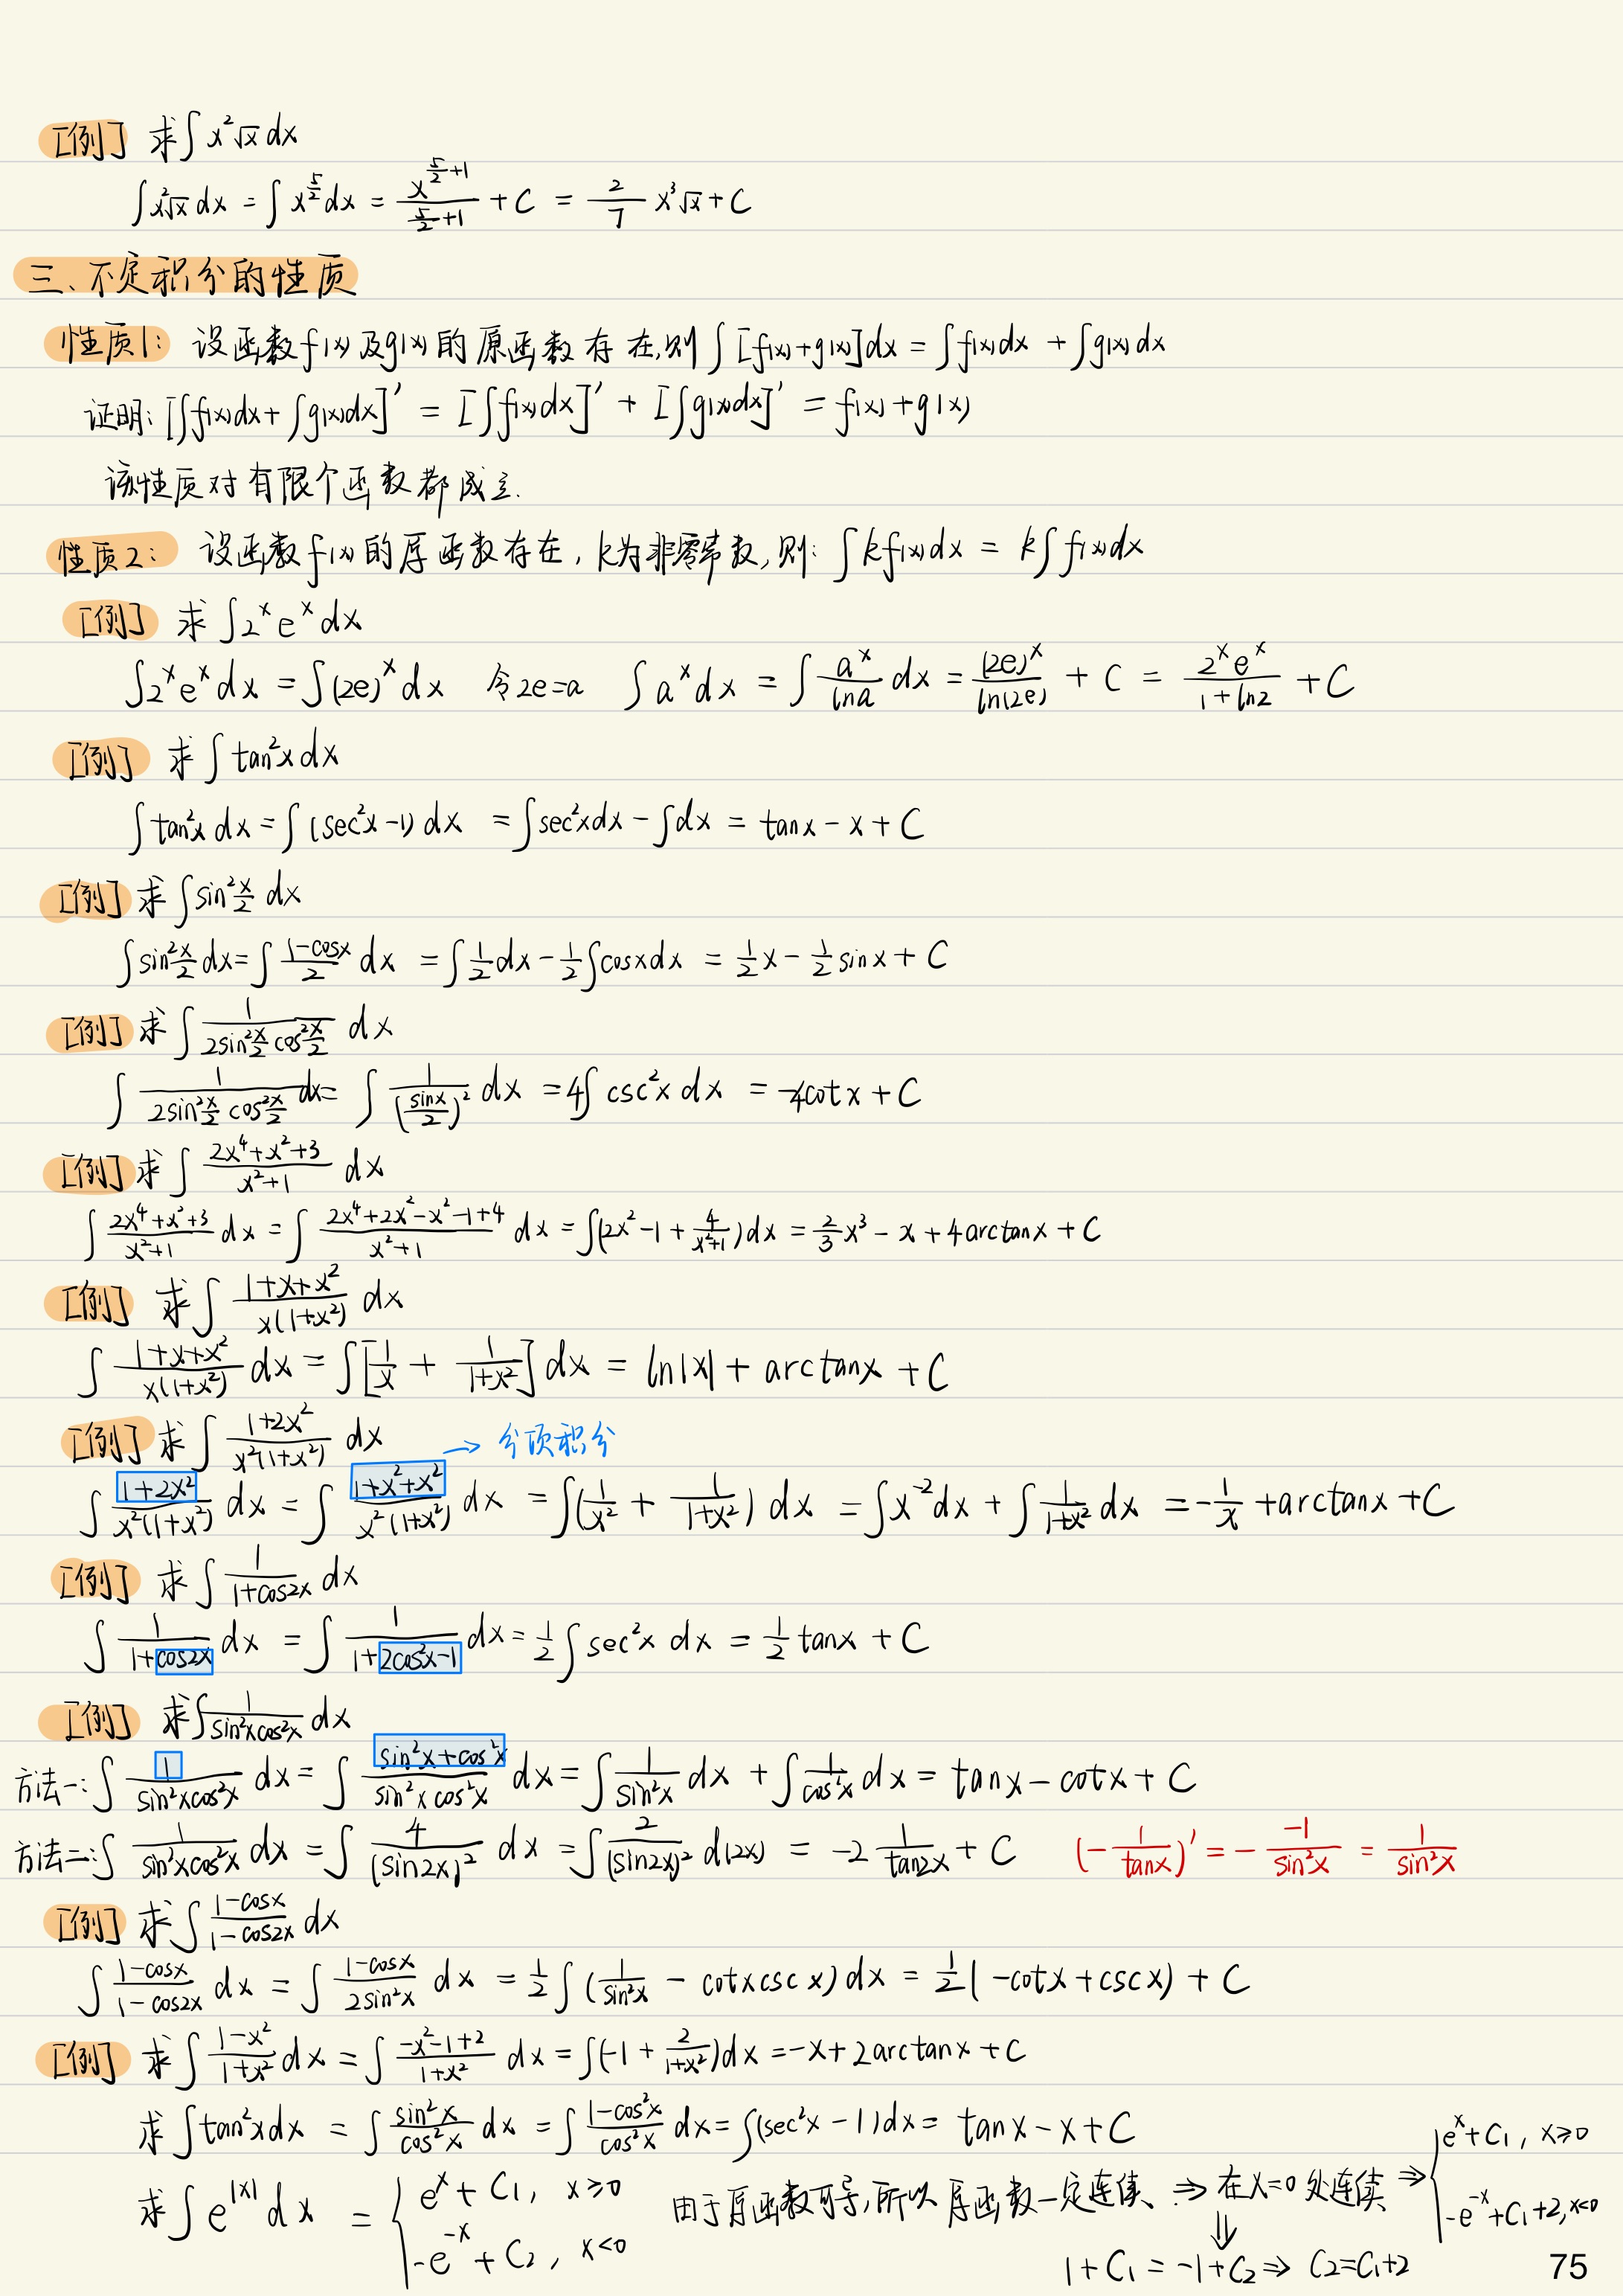 [例] 求∫x²√x dx
∫x²√x dx = ∫x^{5/2}dx = \frac{x^{\frac{5}{2}+1}}{\frac{5}{2}+1} + C = \frac{2}{7} x³√x + C
三、不定积分的性质
性质1: 设函数f(x)及g(x)的原函数存在,则∫[f(x)+g(x)]dx = ∫f(x)dx + ∫g(x)dx
证明: [∫f(x)dx + ∫g(x)dx]′ = [∫f(x)dx]′ + [∫g(x)dx]′ = f(x)+g(x)
该性质对有限个函数都成立.
性质2: 设函数f(x)的原函数存在, k为非零常数,则: ∫kf(x)dx = k∫f(x)dx
[例] 求∫2^x e^x dx
∫2^x e^x dx = ∫(2e)^x dx 令2e=a ∫a^x dx = ∫\frac{a^x}{lna} dx = \frac{(2e)^x}{ln(2e)} + C = \frac{2^x e^x}{1+ln2} + C
[例] 求∫tan²x dx
∫tan²x dx = ∫(sec²x-1) dx = ∫sec²xdx - ∫dx = tanx - x + C
[例] 求∫sin²\frac{x}{2} dx
∫sin²\frac{x}{2} dx = ∫\frac{1-cosx}{2} dx = ∫\frac{1}{2}dx - \frac{1}{2}∫cosxdx = \frac{1}{2}x - \frac{1}{2}sinx + C
[例] 求∫\frac{1}{2sin²\frac{x}{2}cos²\frac{x}{2}} dx
∫\frac{1}{2sin²\frac{x}{2}cos²\frac{x}{2}} dx = ∫\frac{1}{(\frac{sinx}{2})²} dx = 4∫csc²x dx = -4cotx + C
[例] 求∫\frac{2x⁴+x²+3}{x²+1} dx
∫\frac{2x⁴+x²+3}{x²+1} dx = ∫\frac{2x⁴+2x²-x²-1+4}{x²+1} dx = ∫(2x²-1+\frac{4}{x²+1})dx = \frac{2}{3}x³ - x + 4arctanx + C
[例] 求∫\frac{1+x+x²}{x(1+x²)} dx
∫\frac{1+x+x²}{x(1+x²)} dx = ∫[\frac{1}{x} + \frac{1}{1+x²}] dx = ln|x| + arctanx + C
[例] 求∫\frac{1+2x²}{x²(1+x²)} dx → 分项积分
∫\frac{1+2x²}{x²(1+x²)} dx = ∫\frac{1+x²+x²}{x²(1+x²)} dx = ∫(\frac{1}{x²} + \frac{1}{1+x²}) dx = ∫x⁻²dx + ∫\frac{1}{1+x²}dx = -\frac{1}{x} + arctanx + C
[例] 求∫\frac{1}{1+cos2x} dx
∫\frac{1}{1+cos2x} dx = ∫\frac{1}{1+2cos²x-1} dx = \frac{1}{2}∫sec²x dx = \frac{1}{2}tanx + C
[例] 求∫\frac{1}{sin²xcos²x} dx
方法一:∫\frac{1}{sin²xcos²x} dx = ∫\frac{sin²x+cos²x}{sin²xcos²x} dx = ∫\frac{1}{sin²x} dx + ∫\frac{1}{cos²x} dx = tanx - cotx + C
方法二:∫\frac{1}{sin²xcos²x} dx = ∫\frac{4}{(sin2x)²} dx = ∫\frac{2}{(sin2x)²} d(2x) = -2\frac{1}{tan2x} + C (-\frac{1}{tanx})′ = -\frac{-1}{sin²x} = \frac{1}{sin²x}
[例] 求∫\frac{1-cosx}{1-cos2x} dx
∫\frac{1-cosx}{1-cos2x} dx = ∫\frac{1-cosx}{2sin²x} dx = \frac{1}{2}∫(\frac{1}{sin²x} - cotxcscx) dx = \frac{1}{2}(-cotx+cscx) + C
[例] 求∫\frac{1-x²}{1+x²} dx = ∫\frac{-x²-1+2}{1+x²} dx = ∫(-1+\frac{2}{1+x²})dx = -x+2arctanx+C
求∫tan²xdx = ∫\frac{sin²x}{cos²x} dx = ∫\frac{1-cos²x}{cos²x} dx = ∫(sec²x-1)dx = tanx-x+C
求∫e^{|x|}dx = { e^x+C₁, x≥0
-e^{-x}+C₂, x<0
由于原函数可导,所以原函数一定连续、⇒ 在x=0处连续 ⇒ { e^x+C₁, x≥0
-e^{-x}+C₁+2, x<0
⇓
1+C₁=-1+C₂ ⇒ C₂=C₁+2
75